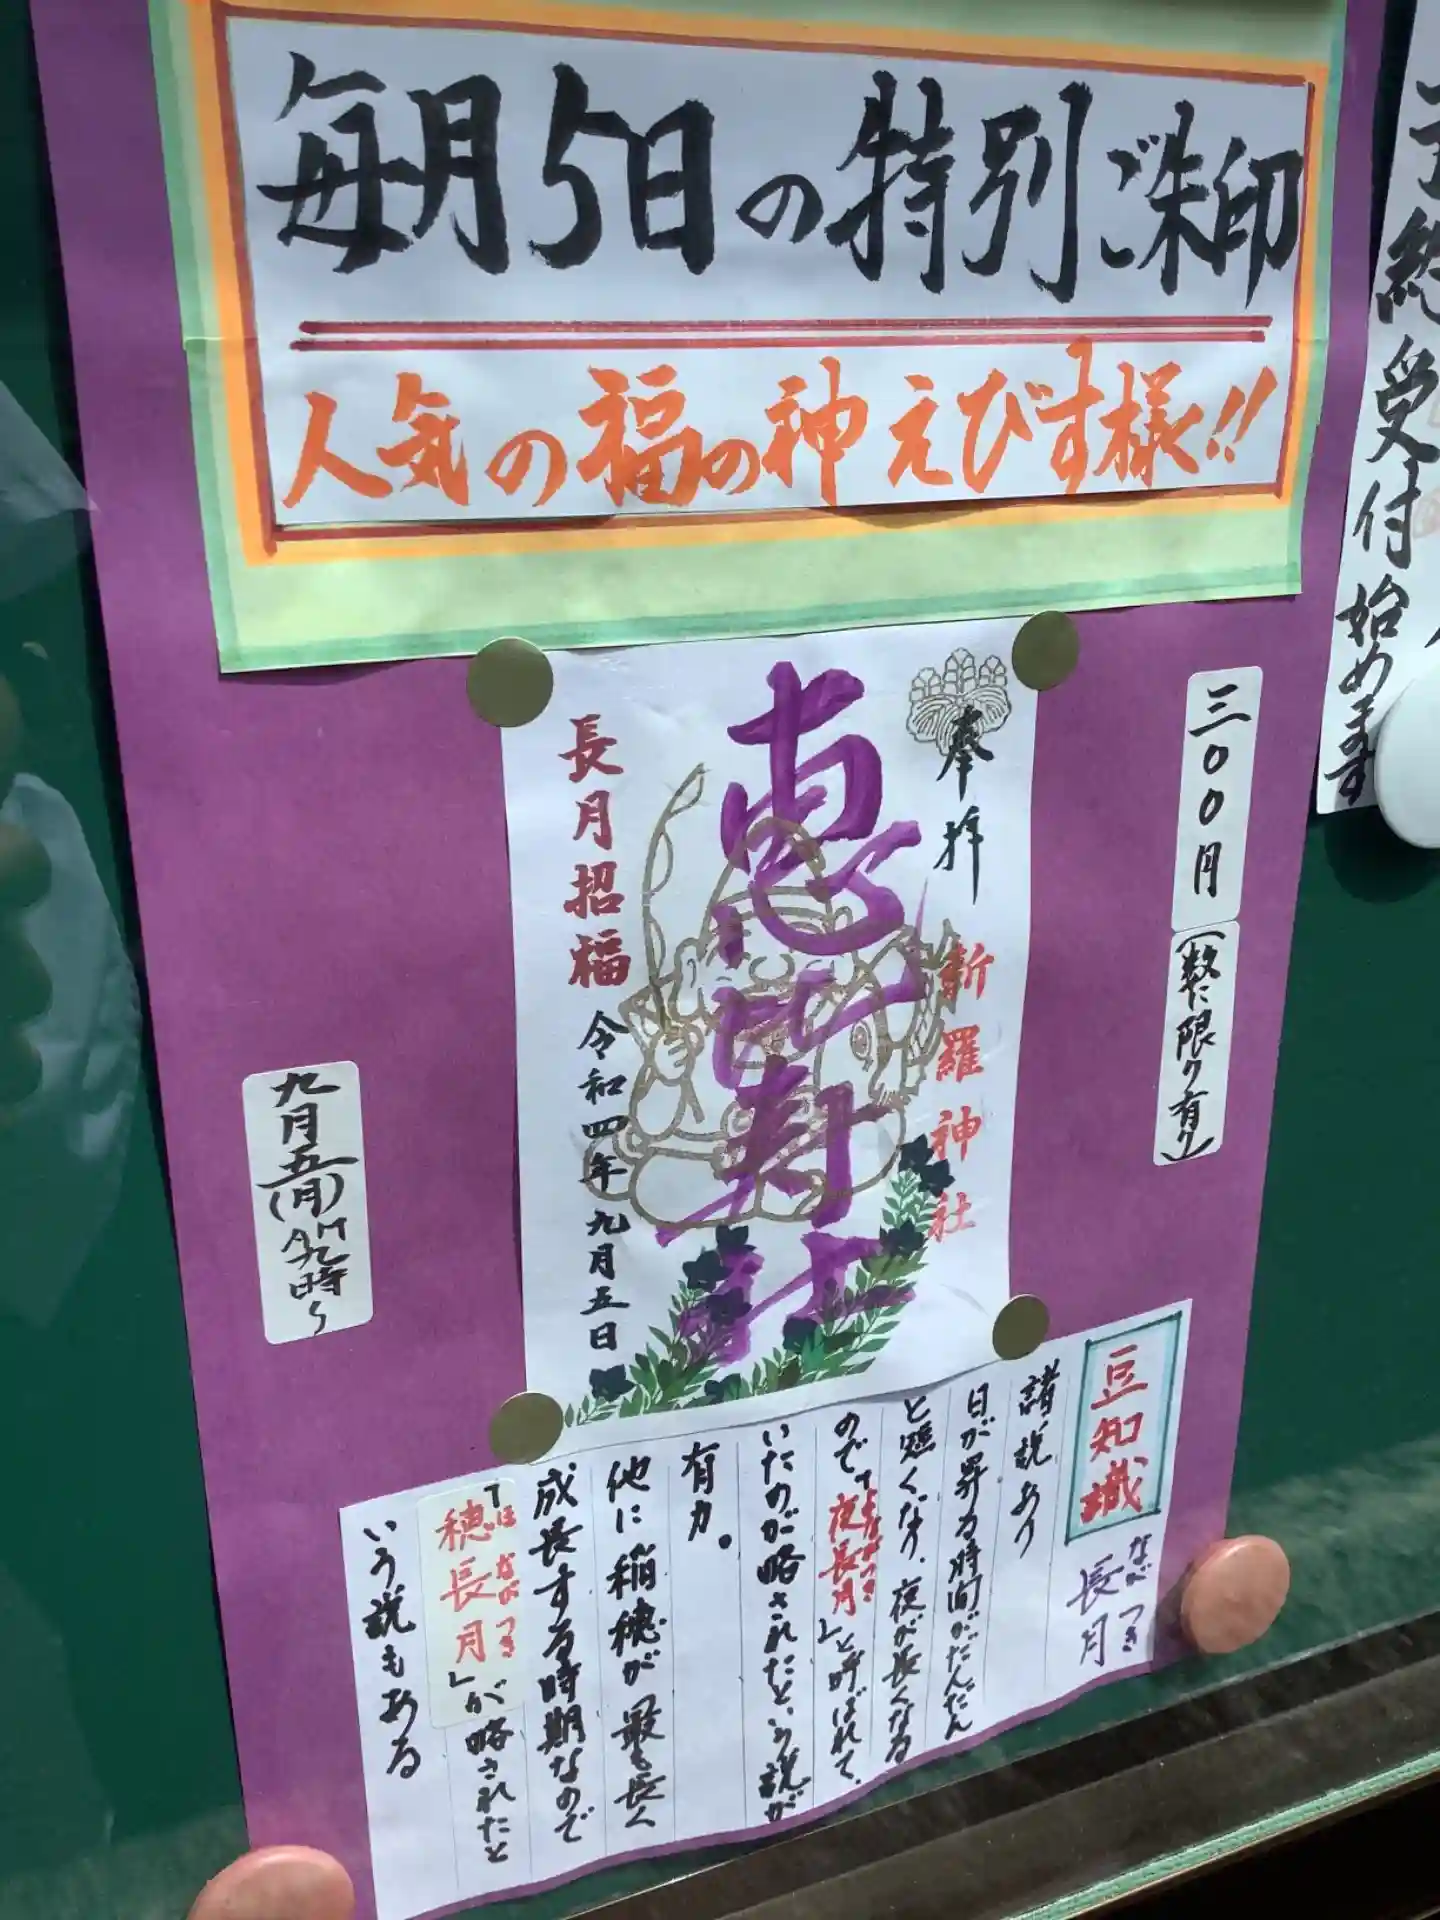 毎月5日の特別ご朱印
人気の福の神えびす様!!
三〇〇円
(数に限り有り)
奉拝
新羅神社
恵比寿社
長月招福
令和四年九月五日
九月五(月)
九時〜
豆知識
長月
ながつき
諸説あり
日が昇る時間がだんだん
と短くなり、夜が長くなる
ので「夜長月」と呼ばれて
よながつき
いたのが略されたという説が
有力。
他に稲穂が最も長く
成長する時期なので
「穂長月」が略されたと
ほながつき
いう説もある
受付始めます